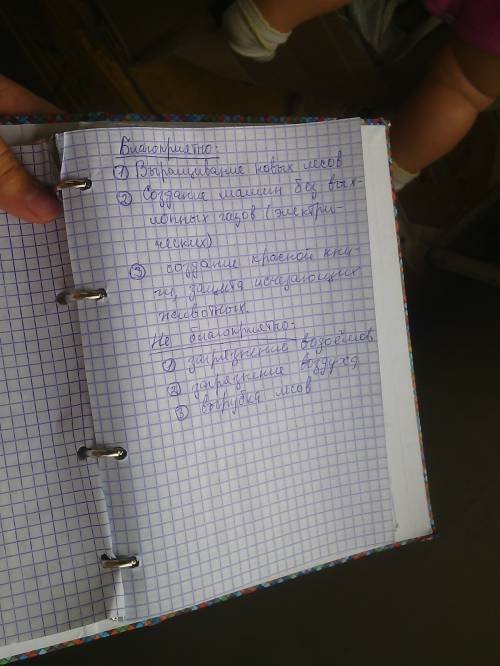 Благоприятно:
① Выращивание новых лесов
② Создание машин без вых-
лопных газов (электри-
ческих)
③ создание красной кни-
ги, защита исчезающих
животных.
Не благоприятно:
① загрязнение водоёмов
② загрязнение воздуха
③ вырубка лесов